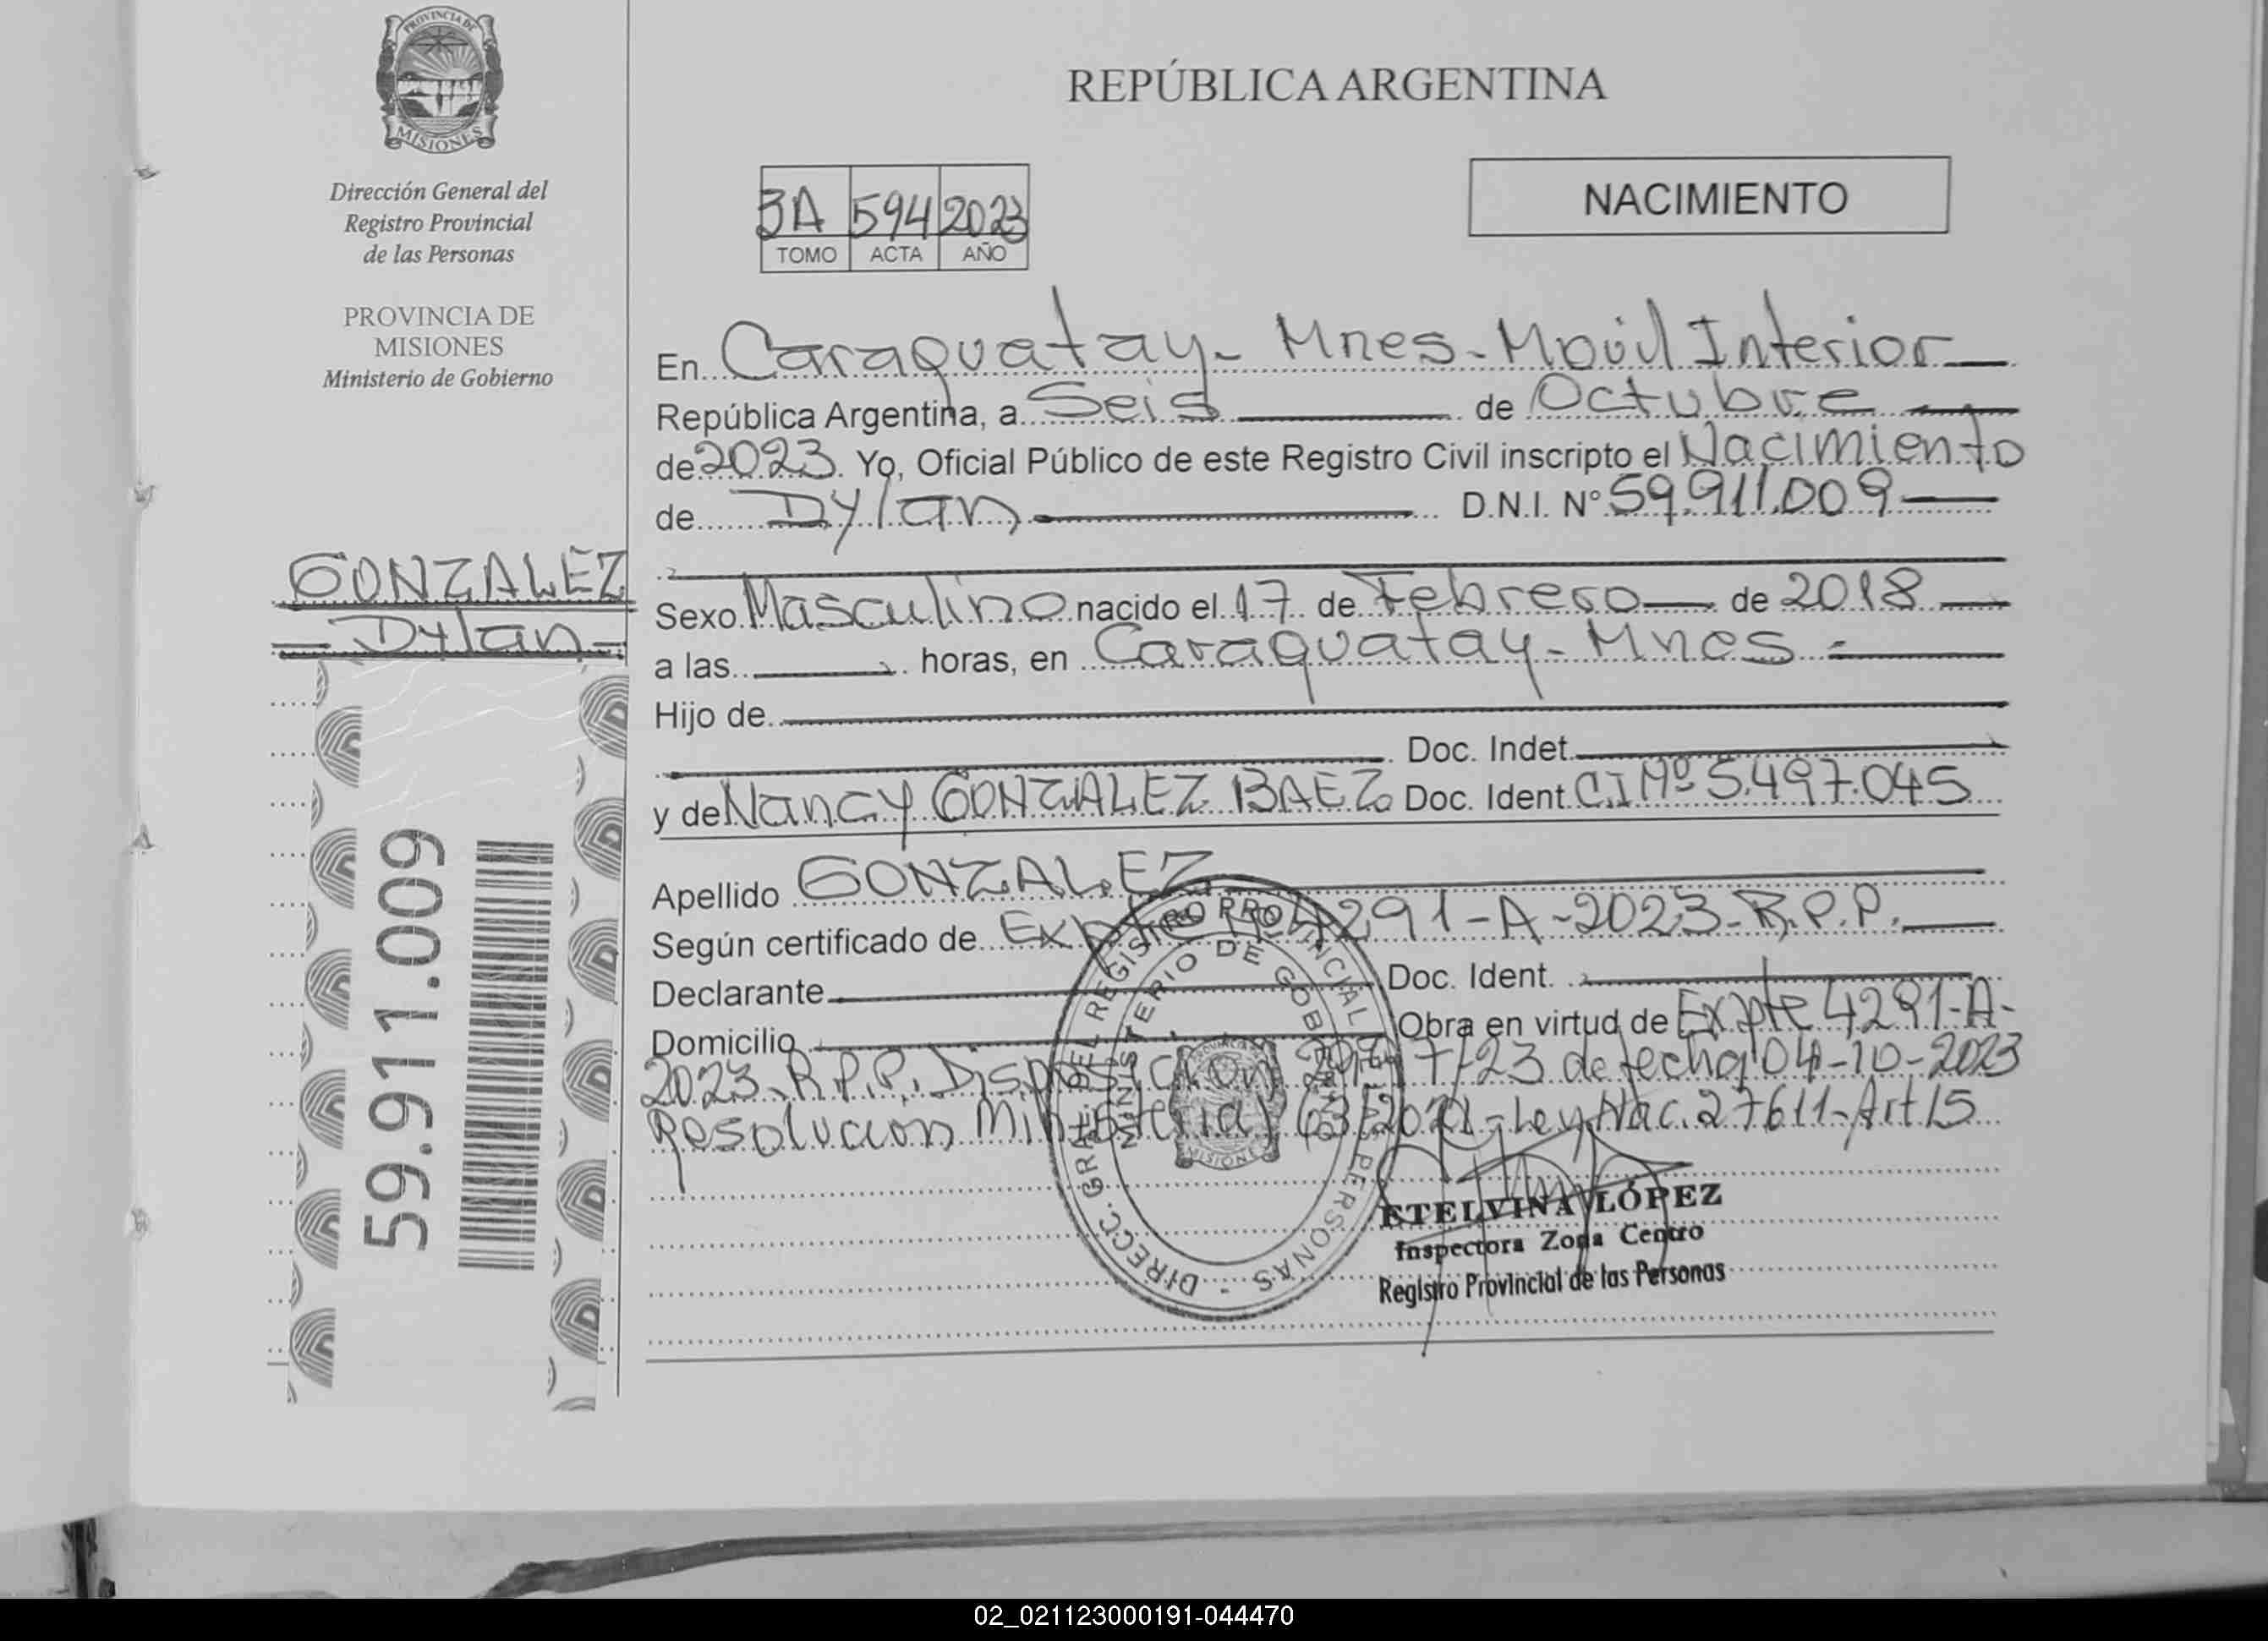 PROVINCIA DE
MISIONES
Dirección General del
Registro Provincial
de las Personas
PROVINCIA DE
MISIONES
Ministerio de Gobierno
GONZALEZ
Dylan
59.911.009
REPÚBLICA ARGENTINA
3A 594 2023
TOMO ACTA AÑO
NACIMIENTO
En Caraguatay - Mnes - Movil Interior
República Argentina, a Seis de Octubre
de 2023. Yo, Oficial Público de este Registro Civil inscripto el Nacimiento
de Dylan D.N.I. Nº 59.911.009
Sexo Masculino nacido el 17 de Febrero de 2018
a las horas, en Caraguatay - Mnes -
Hijo de
Doc. Indet.
y de Nancy GONZALEZ BAEZ Doc. Ident. C.I Nº 5.497.045
Apellido GONZALEZ
Según certificado de Expte 4291-A-2023-R.P.P.
Declarante Doc. Ident.
Domicilio Obra en virtud de Expte 4291-A-
2023-R.P.P. Disposicion 7/23 de fecha 04-10-2023
Resolucion Ministerial Ley Nac. 27611-Art 15
DIRECC. GRAL. DEL REGISTRO PROVINCIAL DE LAS PERSONAS -
MINISTERIO DE GOBIERNO
MISIONES
ETELVINA LÓPEZ
Inspectora Zona Centro
Registro Provincial de las Personas
02_021123000191-044470